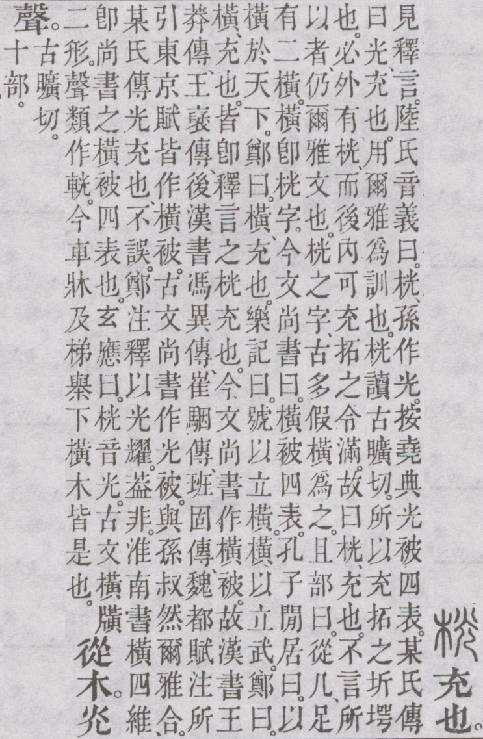 桄充也。
見釋言。陸氏音義曰。桄、孫作光。按堯典光被四表。某氏傳
曰光充也。用爾雅爲訓也。桄讀古曠切。所以充拓之圻堮
也。必外有桄、而後內可充拓之令滿。故曰桄、充也。不言所
以者仍爾雅文也。桄之字、古多假橫爲之。且部曰。從几、足
有二橫。橫卽桄字。今文尚書曰。橫被四表。孔子閒居曰。以
橫於天下。鄭曰。橫、充也。樂記曰。號以立橫。橫以立武。鄭曰。
橫、充也。皆卽釋言之桄充也。今文尚書作橫被。故漢書王
莽傳、王襃傳、後漢書馮異傳、崔駰傳、班固傳、魏都賦注所
引東京賦皆作橫被。古文尚書作光被。與孫叔然爾雅合。
某氏傳光充也、不誤。鄭注釋以光耀。葢非。淮南書橫四維、
卽尚書之橫被四表也。玄應曰。桄音光。古文橫䊯
二形。聲類作軦。今車牀及梯舉下橫木皆是也。從木。炗
聲。古曠切。
十部。